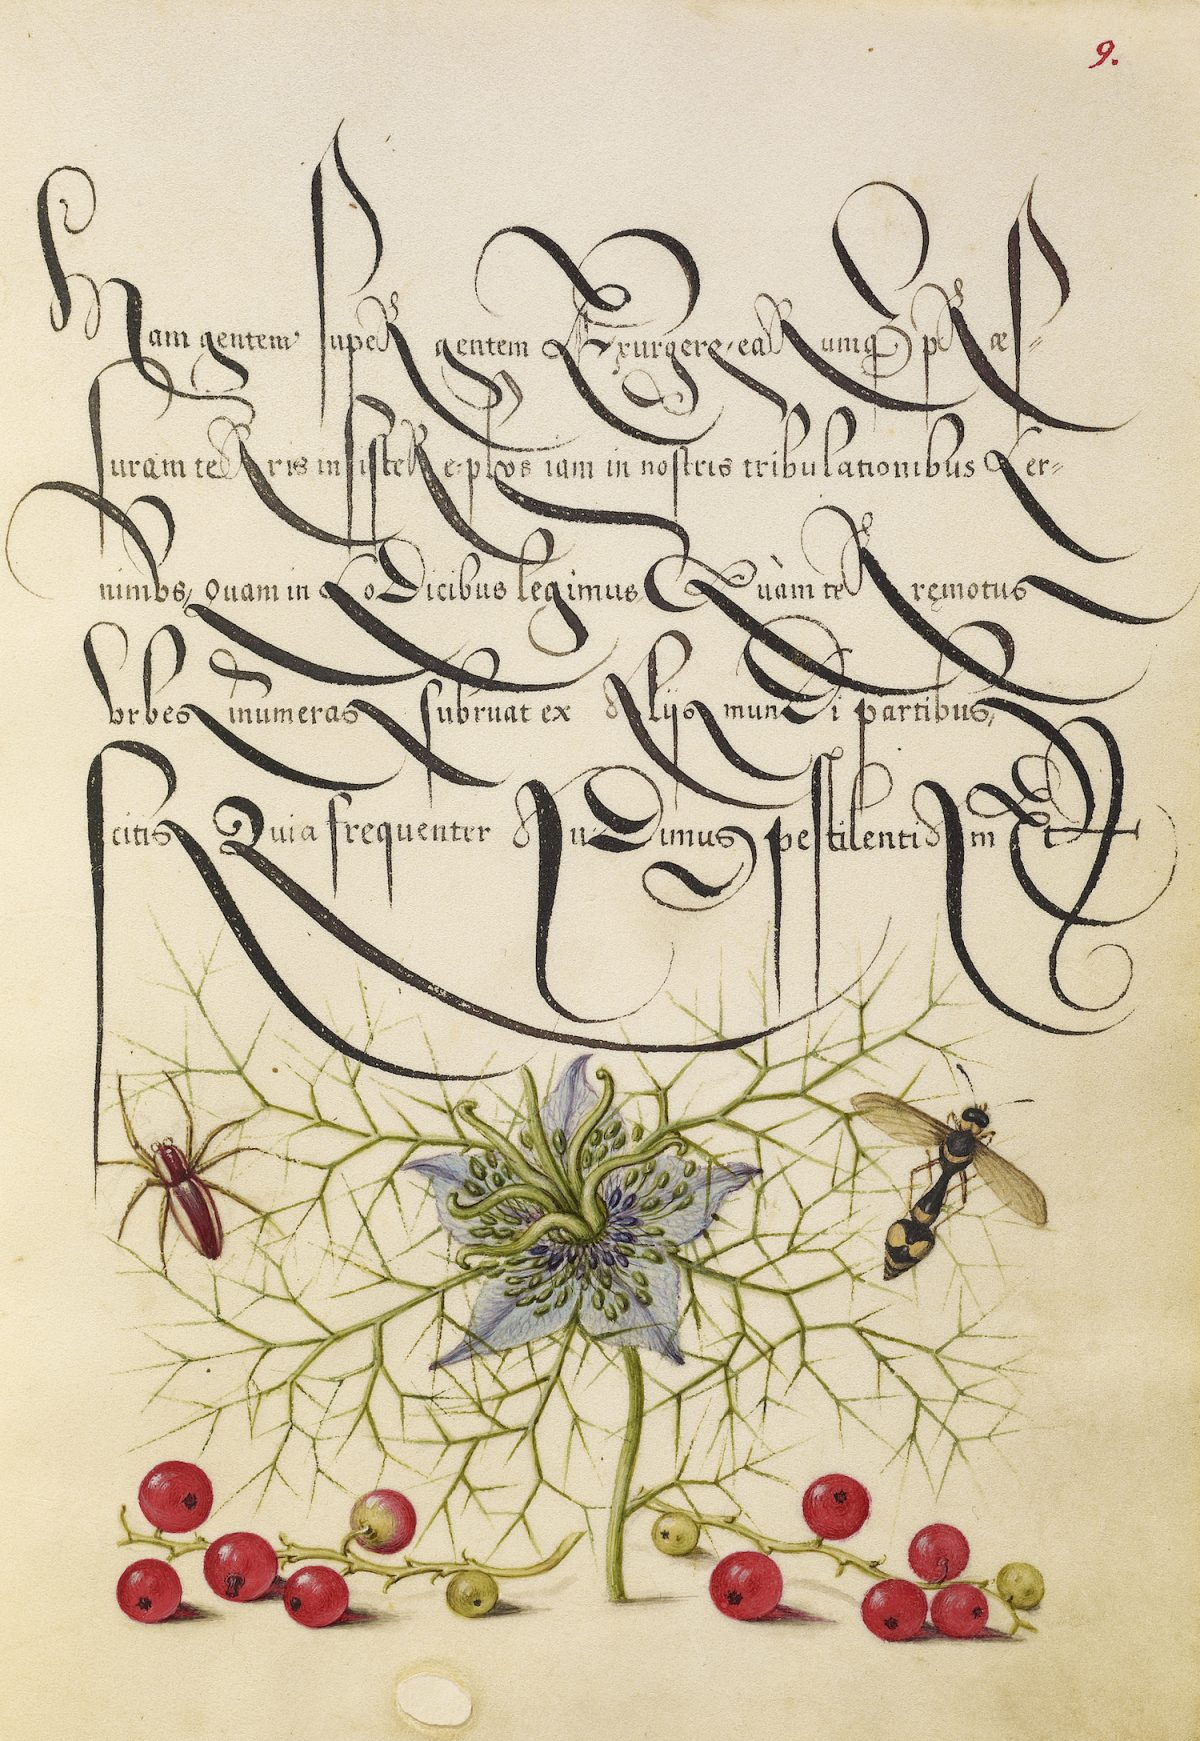 9.
Nam gentem super gentem Exurgere, earumq́ præs-
suram terris insistere, plvs iam in nostris tribulationibus Cer-
nimvs, Quam in Codicibus legimus. Quàm terręmotus
Vrbes inumeras subruat ex Alijs mundi partibus,
scitis Quia frequenter Audimus pestilentiam Et